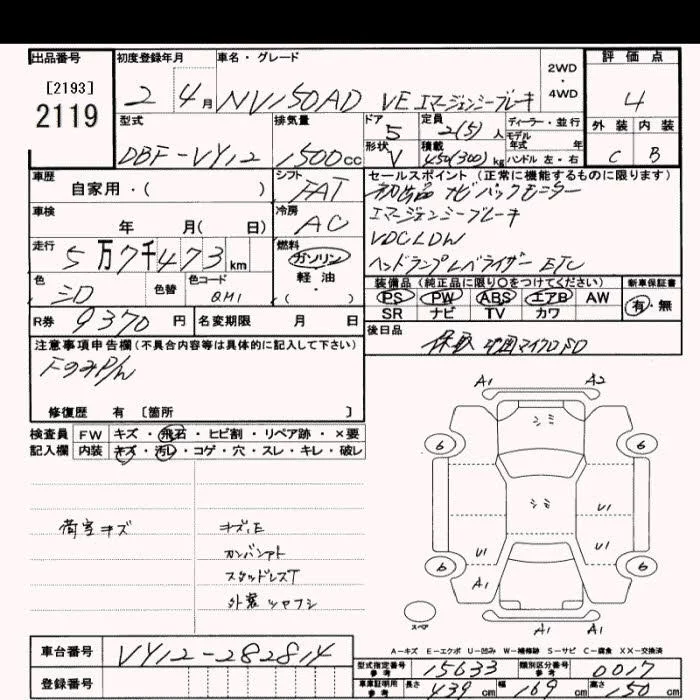 出品番号 初度登録年月 車名・グレード 2WD・4WD 評価点
[2193]
2119
2 4月 NV150AD VE エマージェンシーブレーキ 4
型式 排気量 ドア 5 定員 2(5)人 ディーラー・並行 外装 内装
モデル年式 年
DBF-VY12 1500cc 形状 V 積載 450(300)kg ハンドル 左・右 C B
車歴 シフト セールスポイント (正常に機能するものに限ります)
自家用・( ) FAT ナビ バックモニター
車検 冷房 エマージェンシーブレーキ
年 月( 日) AC VDC LDW
走行 燃料 ヘッドランプレベライザー ETC
5万7千473km ガソリン
軽油
・( )
色 色替 色コード 装備品 (純正品に限り○をつけてください) 新車保証書
シロ QM1 PS PW ABS エアB AW 有・無
SR ナビ TV カワ
R券 9370円 名変期限 月 日 後日品
注意事項申告欄(不具合内容等は具体的に記入して下さい) 保取 地図マイクロSD
FのみP/w
修復歴 有 [箇所 ]
検査員 FW キズ・飛石・ヒビ割・リペア跡・×要
記入欄 内装 キズ・汚レ・コゲ・穴・スレ・キレ・破レ
A1 A2
シミ
6 6
シミ U1
U1 U1
6 6
A1
スペア A1 A1
荷室キズ キズ,E
カンバンアト
スタッドレスT
外装ツヤフシ
A-キズ E-エクボ U-凹み W-補修跡 S-サビ C-腐食 XX-交換済
車台番号 VY12-282814
登録番号
型式指定番号 参考 15633 類別区分番号 参考 0017
車庫証明用 参考 長さ 439cm 幅 169cm 高さ 50cm